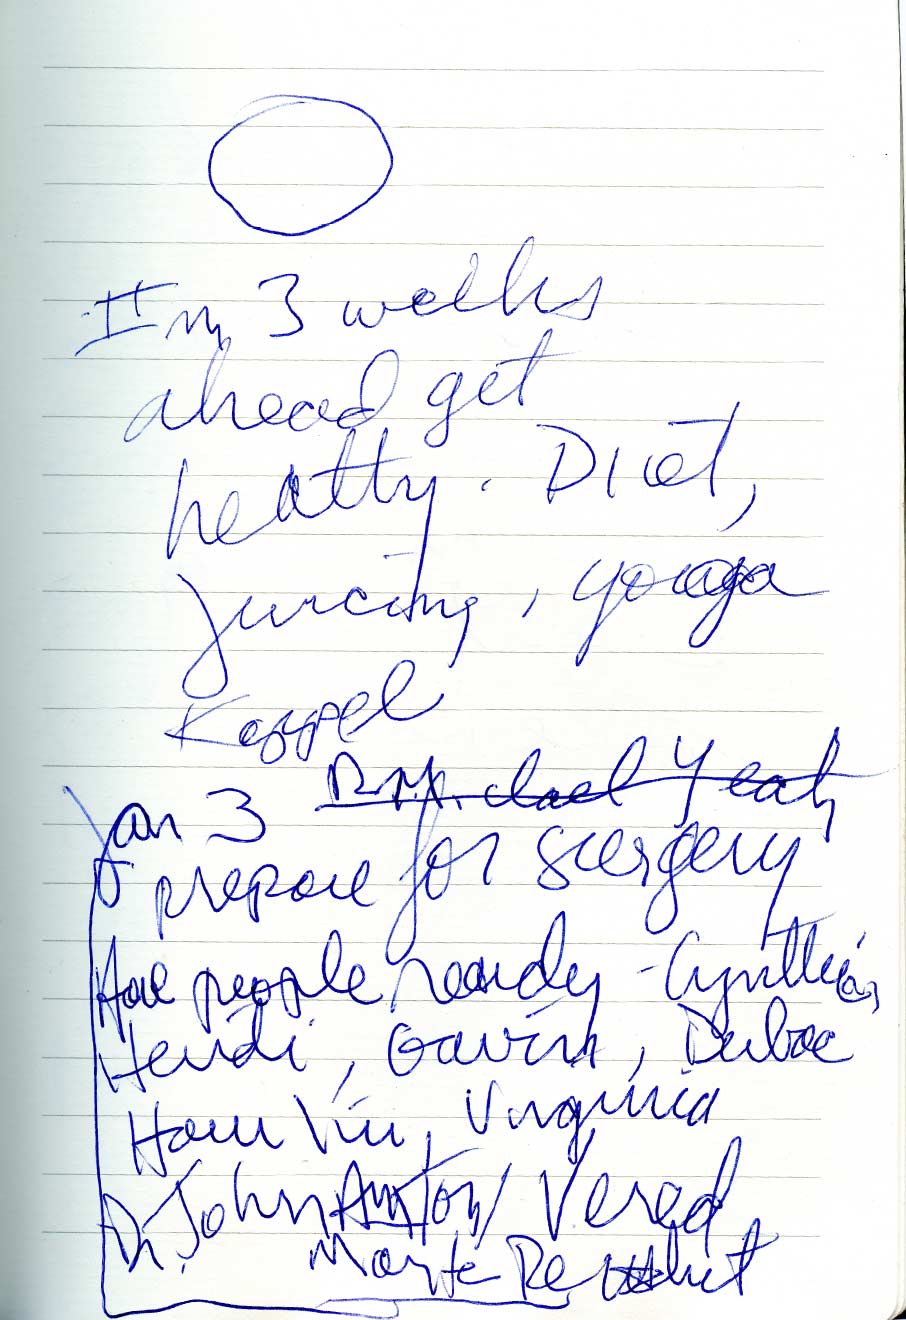 Im 3 weeks
ahead get
healthy. Diet,
Juicing, yoaga
Koppel
Jan 3 Dr. Michael Yeah
prepare for surgery
Have people ready - Cynthia,
Heidi, Gavin,
Virginia
Dr. John Anton/ Vered